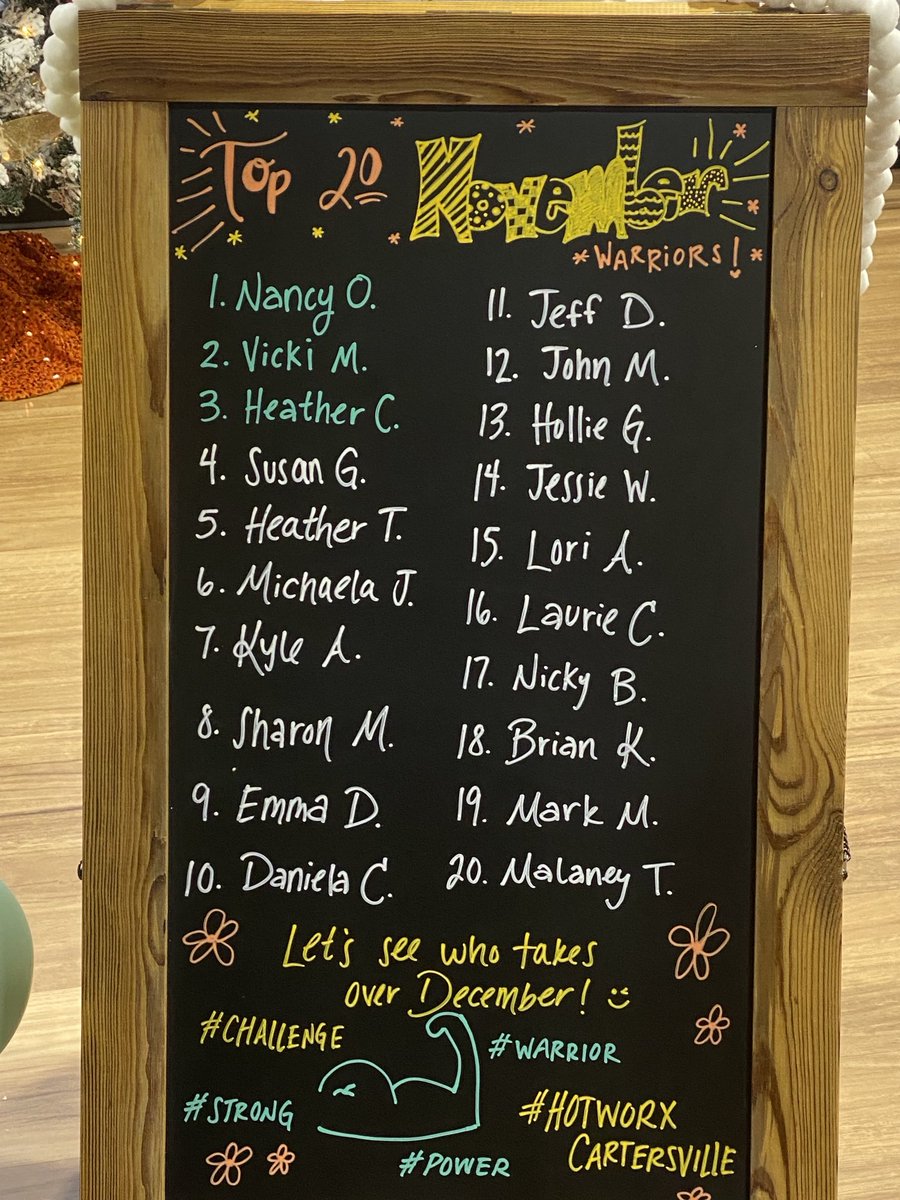 Top 20 November
*WARRIORS!*
1. Nancy O.
2. Vicki M.
3. Heather C.
4. Susan G.
5. Heather T.
6. Michaela J.
7. Kyle A.
8. Sharon M.
9. Emma D.
10. Daniela C.
11. Jeff D.
12. John M.
13. Hollie G.
14. Jessie W.
15. Lori A.
16. Laurie C.
17. Nicky B.
18. Brian K.
19. Mark M.
20. Malaney T.
Let's see who takes
over December! :)
#CHALLENGE
#WARRIOR
#STRONG
#HOTWORX
CARTERSVILLE
#POWER